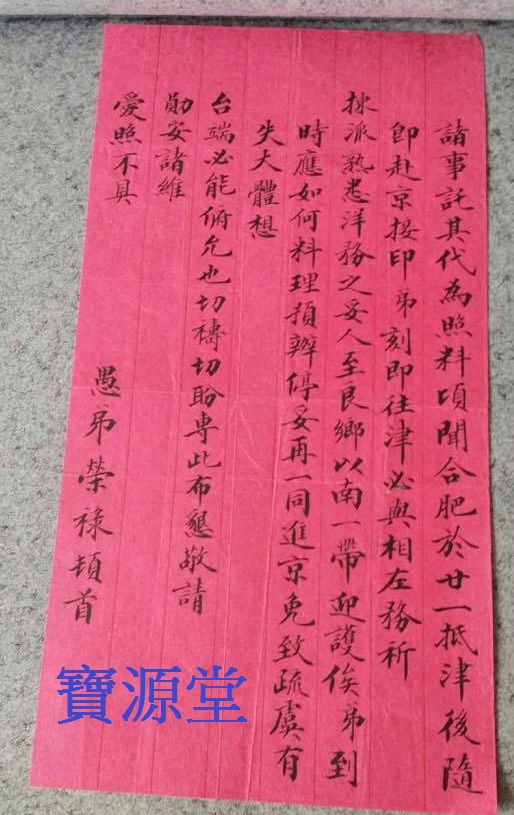 諸事託其代為照料頃聞合肥於廿一抵津後隨
即赴京接印弟刻即往津必與相左務祈
揀派熟悉洋務之妥人至良鄉以南一帶迎護俟弟到
時應如何料理預辦停妥再一同進京免致疏虞有
失大體想
台端必能俯允也切禱切盼專此布懇敬請
勛安諸維
愛照不具
愚弟榮祿頓首
寶源堂